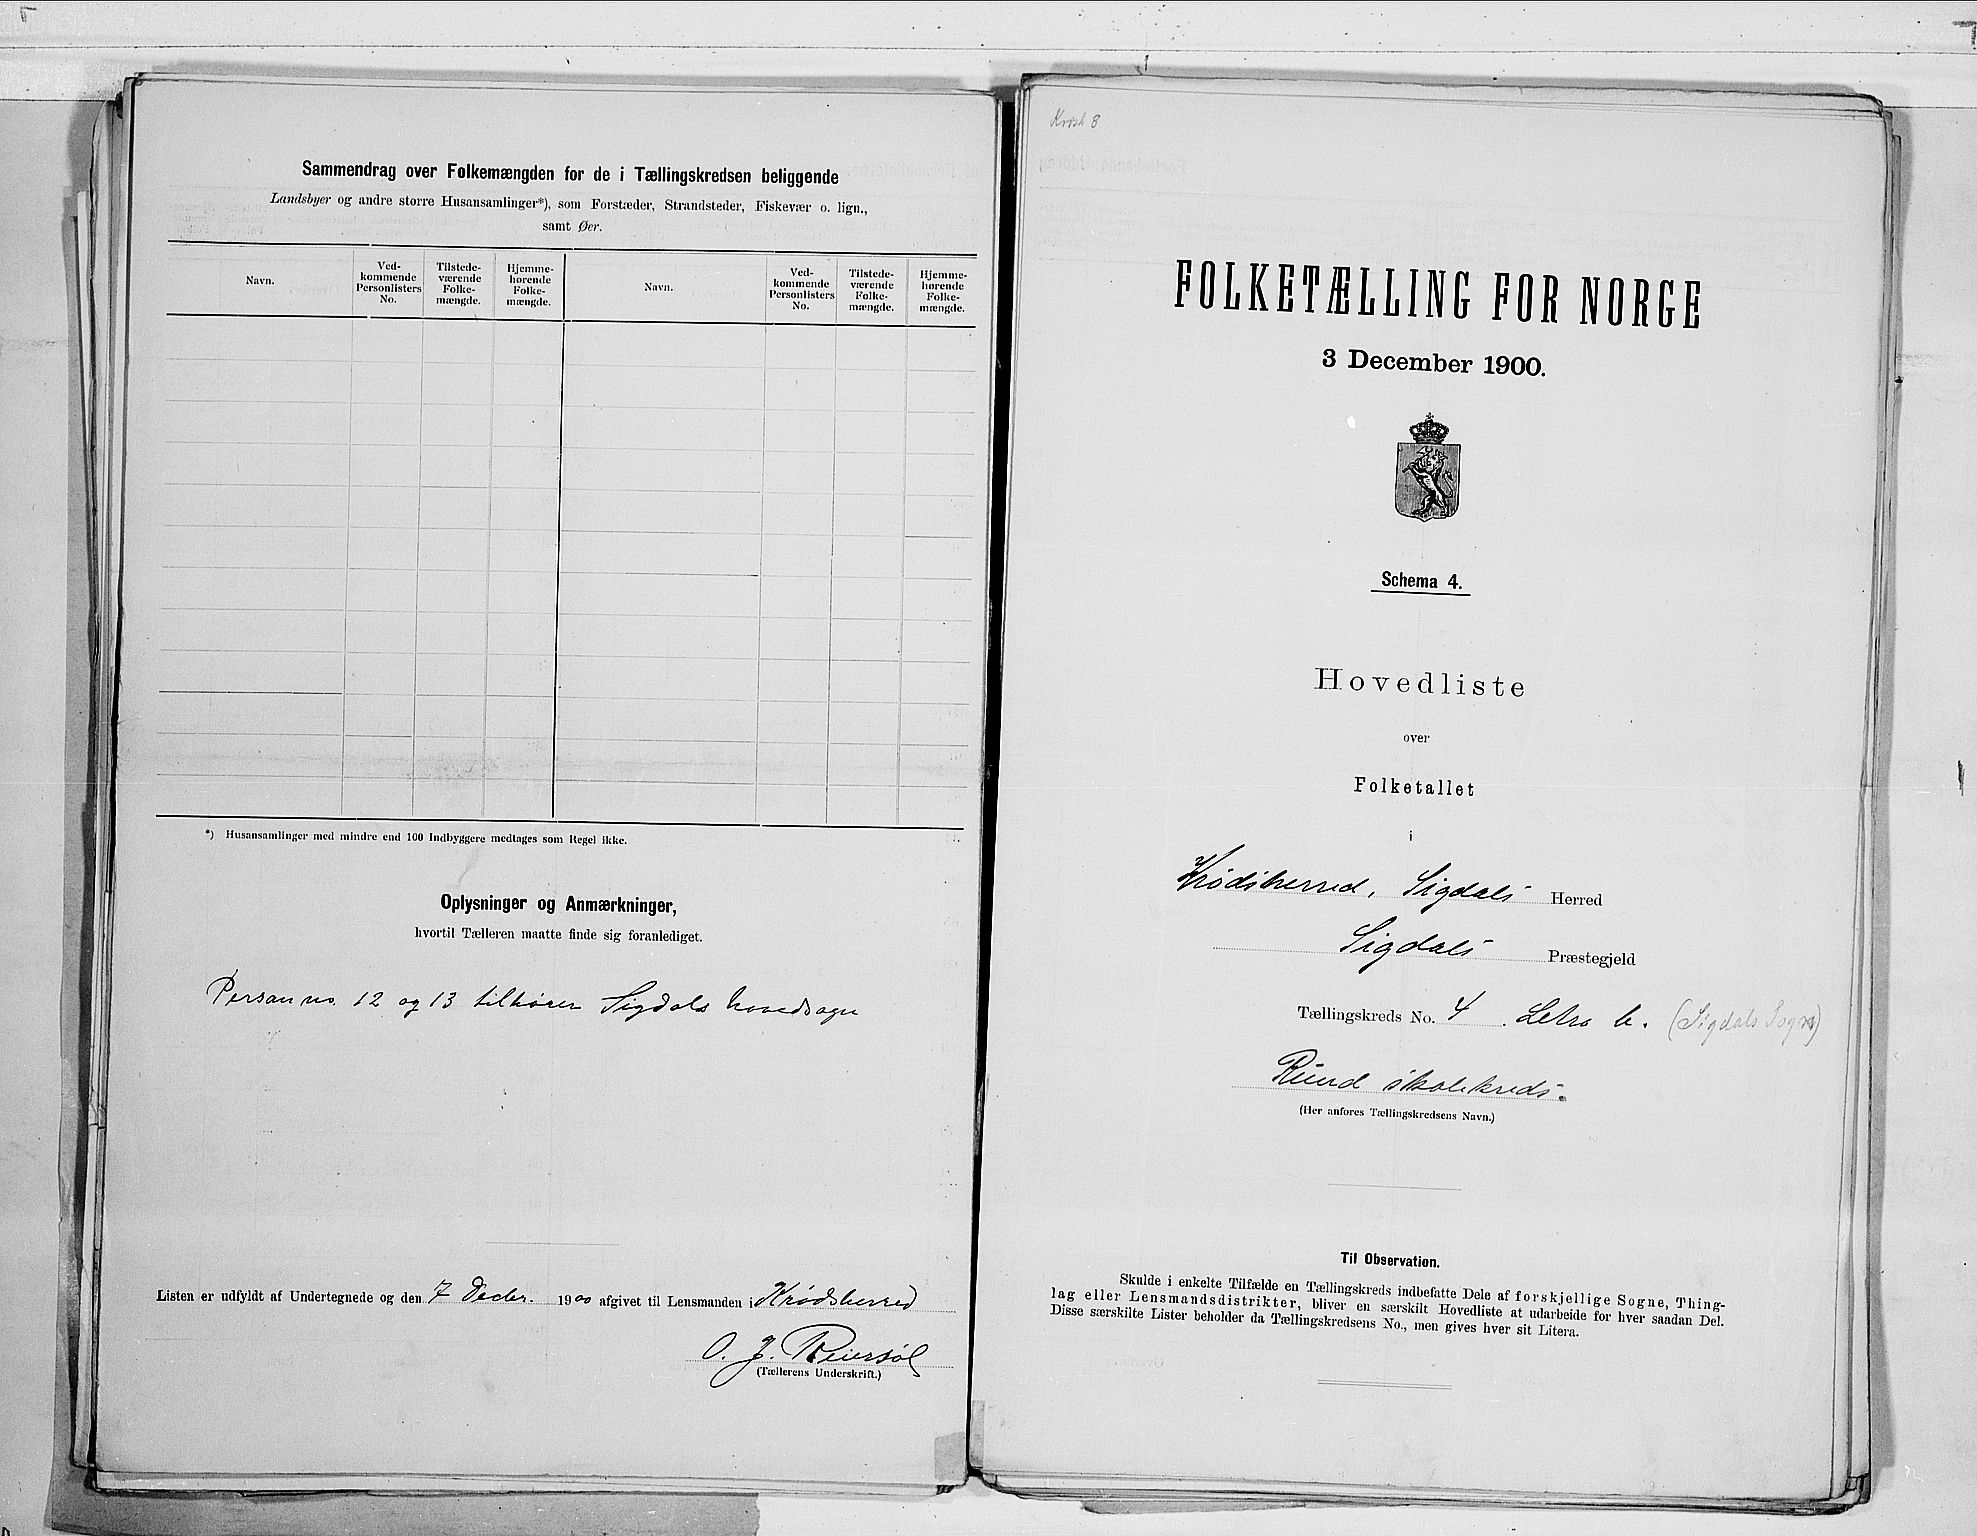 Sammendrag over Folkemængden for de i Tællingskredsen beliggende
Landsbyer og andre større Husansamlinger*), som Forstæder, Strandsteder, Fiskevær o. lign.,
samt Øer.
Navn.
Ved-
kommende
Personlisters
No.
Tilstede-
værende
Folke-
mængde.
Hjemme-
hørende
Folke-
mængde.
Navn.
Ved-
kommende
Personlisters
No.
Tilstede-
værende
Folke-
mængde.
Hjemme-
hørende
Folke-
mængde.
*) Husansamlinger med mindre end 100 Indbyggere medtages som Regel ikke.
Oplysninger og Anmærkninger,
hvortil Tælleren maatte finde sig foranlediget.
Person no. 12 og 13 tilhører Sigdals hovedsogn
Listen er udfyldt af Undertegnede og den 7 Decbr. 1900 afgivet til Lensmanden i Krødsherred
O. J. Reiersøl
(Tællerens Underskrift.)
Krøsh 8
FOLKETÆLLING FOR NORGE
3 December 1900.
Schema 4.
Hovedliste
over
Folketallet
i
Krødsherred, Sigdals Herred
Sigdals Præstegjeld
Tællingskreds No. 4. Letra b. (Sigdals Sogn)
Ruud skolekreds.
(Her anføres Tællingskredsens Navn.)
Til Observation.
Skulde i enkelte Tilfælde en Tællingskreds indbefatte Dele af forskjellige Sogne, Thing-
lag eller Lensmandsdistrikter, bliver en særskilt Hovedliste at udarbeide for hver saadan Del.
Disse særskilte Lister beholder da Tællingskredsens No., men gives hver sit Litera.